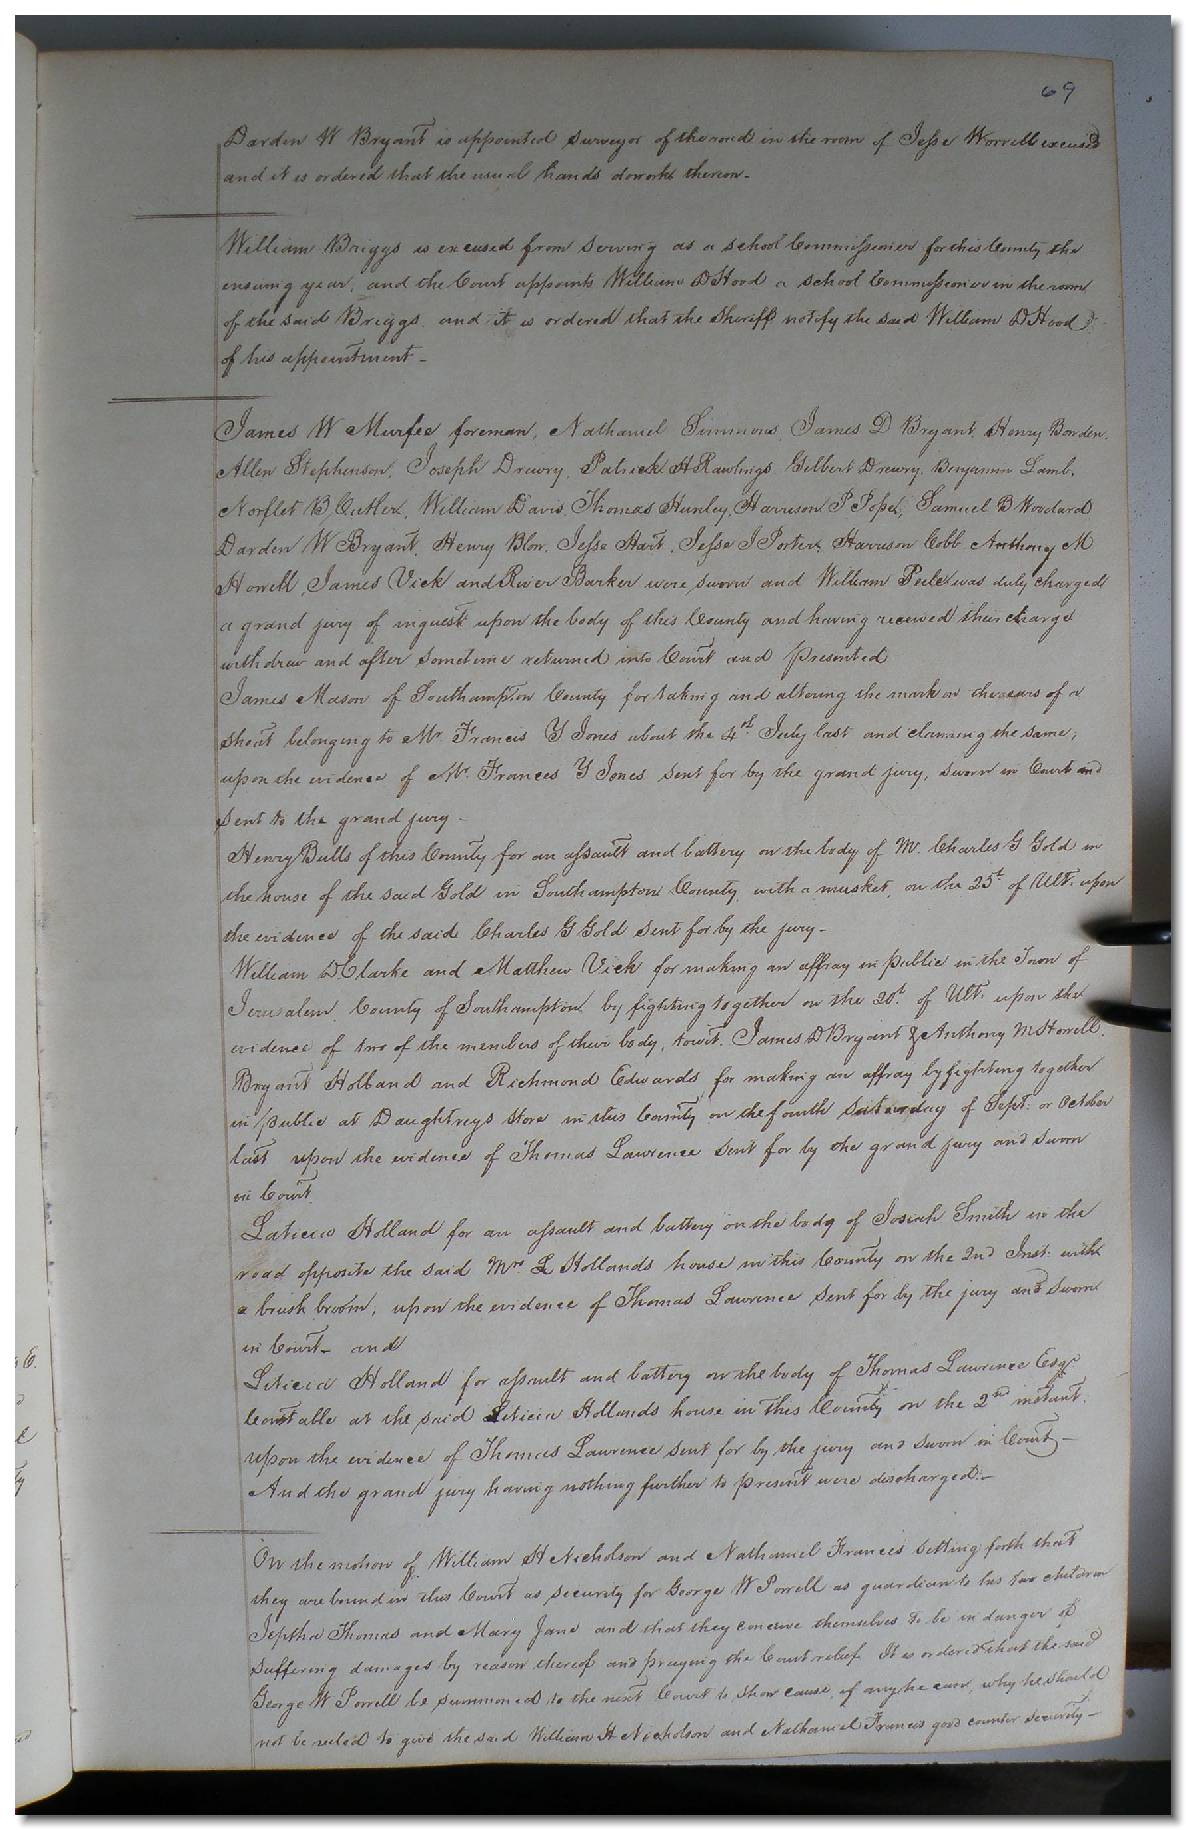 69
Darden W Bryant is appointed surveyor of the road in the room of Jesse Worrell excused
and it is ordered that the usual hands do work thereon.
William Briggs is excused from serving as a school Commissioner for this County the
ensuing year, and the Court appoints William D Hood a school Commissioner in the room
of the said Briggs and it is ordered that the Sheriff notify the said William D Hood
of his appointment -
James W Murfee foreman, Nathaniel Simmons, James D Bryant, Henry Borden,
Allen Stephenson, Joseph Drewry, Patrick H Rawlings Gilbert Drewry, Benjamin Lamb,
Norflet B Cutler, William Davis, Thomas Hunley, Harrison P Pope, Samuel B Woodard
Darden W Bryant, Henry Blow, Jesse Hart, Jesse J Porter, Harrison Cobb Anthony M
Howell, James Vick and River Barker were sworn and William Peele was duly charged
a grand jury of inquest upon the body of this County and having received their charge
withdrew and after sometime returned into Court and Presented
James Mason of Southampton County for taking and altering the mark on the ears of a
shoat belonging to Mr Francis Y Jones about the 4th July last and claiming the same,
upon the evidence of Mr. Frances Y Jones sent for by the grand jury, sworn in Court and
sent to the grand jury -
Henry Bulls of this County for an assault and battery on the body of Mr. Charles G Gold in
the house of the said Gold in Southampton County, with a musket, on the 25t of Ult. upon
the evidence of the said Charles G Gold sent for by the jury -
William D Clarke and Matthew Vick for making an affray in public in the Town of
Jerusalem County of Southampton by fighting together on the 20t of Ult. upon the
evidence of two of the members of their body, towit. James D Bryant & Anthony M Howell.
Bryant Holland and Richmond Edwards for making an affray by fighting together
in public at Daughtreys Store in this County on the fourth saturday of Sept. or October
last upon the evidence of Thomas Lawrence sent for by the grand jury and sworn
in Court.
Laticia Holland for an assault and battery on the body of Josiah Smith in the
road opposite the said Mrs L Hollands house in this County on the 2nd Inst. with
a brush broom, upon the evidence of Thomas Lawrence sent for by the jury and sworn
in Court - and
Leticia Holland for assault and battery on the body of Thomas Lawrence Esqr
Constable at the said Leticia Hollands house in this County on the 2nd instant.
upon the evidence of Thomas Lawrence sent for by the jury and sworn in Court -
And the grand jury having nothing further to present were discharged. -
On the motion of William H Nicholson and Nathaniel Francis setting forth that
they are bound in this Court as security for George W Porrell as guardian to his two children
Jeptha Thomas and Mary Jane and that they conceive themselves to be in danger of
suffering damages by reason thereof and praying the Court relief. It is ordered that the said
George W Porrell be summoned to the next Court to show cause, if any he can, why he should
not be ruled to give the said William H Nicholson and Nathaniel Francis good counter security -